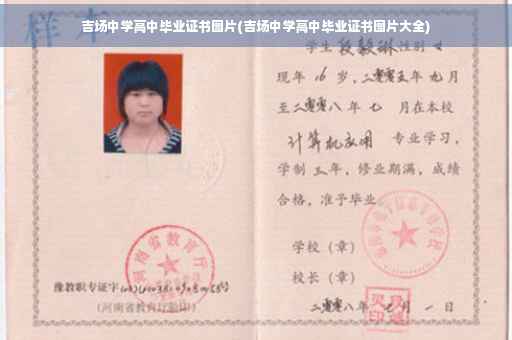 吉场中学高中毕业证书图片(吉场中学高中毕业证书图片大全)
样本
学生 段毅琳 性别 女
现年 16 岁，二零零五年 九月
至二零零八年 七 月在本校
计算机应用 专业学习，
学制 三 年，修业期满，成绩
合格，准予毕业。
学校（章）
校长（章）
二零零八年 七 月 一 日
河南省教育厅
豫教职专证字
(河南省教育厅验印)